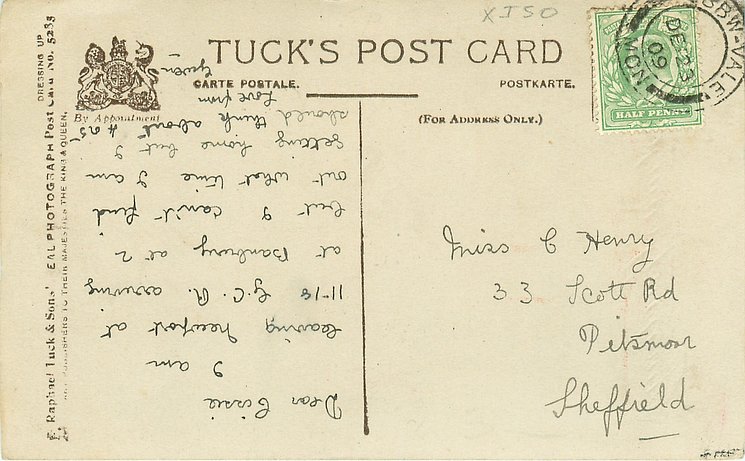 XISO
TUCK'S POST CARD
CARTE POSTALE.
POSTKARTE.
By Appointment
(FOR ADDRESS ONLY.)
HALF PENNY
BBW-VALE
DE 23
09
MON
Miss C Henry
33 Scott Rd
Pitsmoor
Sheffield
Dear Cissie
I am
leaving Newport at
11-18 G.C.R. arriving
at Banbury at 2
but I can't find
out what time I am
getting home but I
should think about 4.25
Love from
Gwen
Raphael Tuck & Sons' EAL PHOTOGRAPH Post Card No. 5283
DRESSING UP
PUBLISHERS TO THEIR MAJESTIES THE KING & QUEEN.